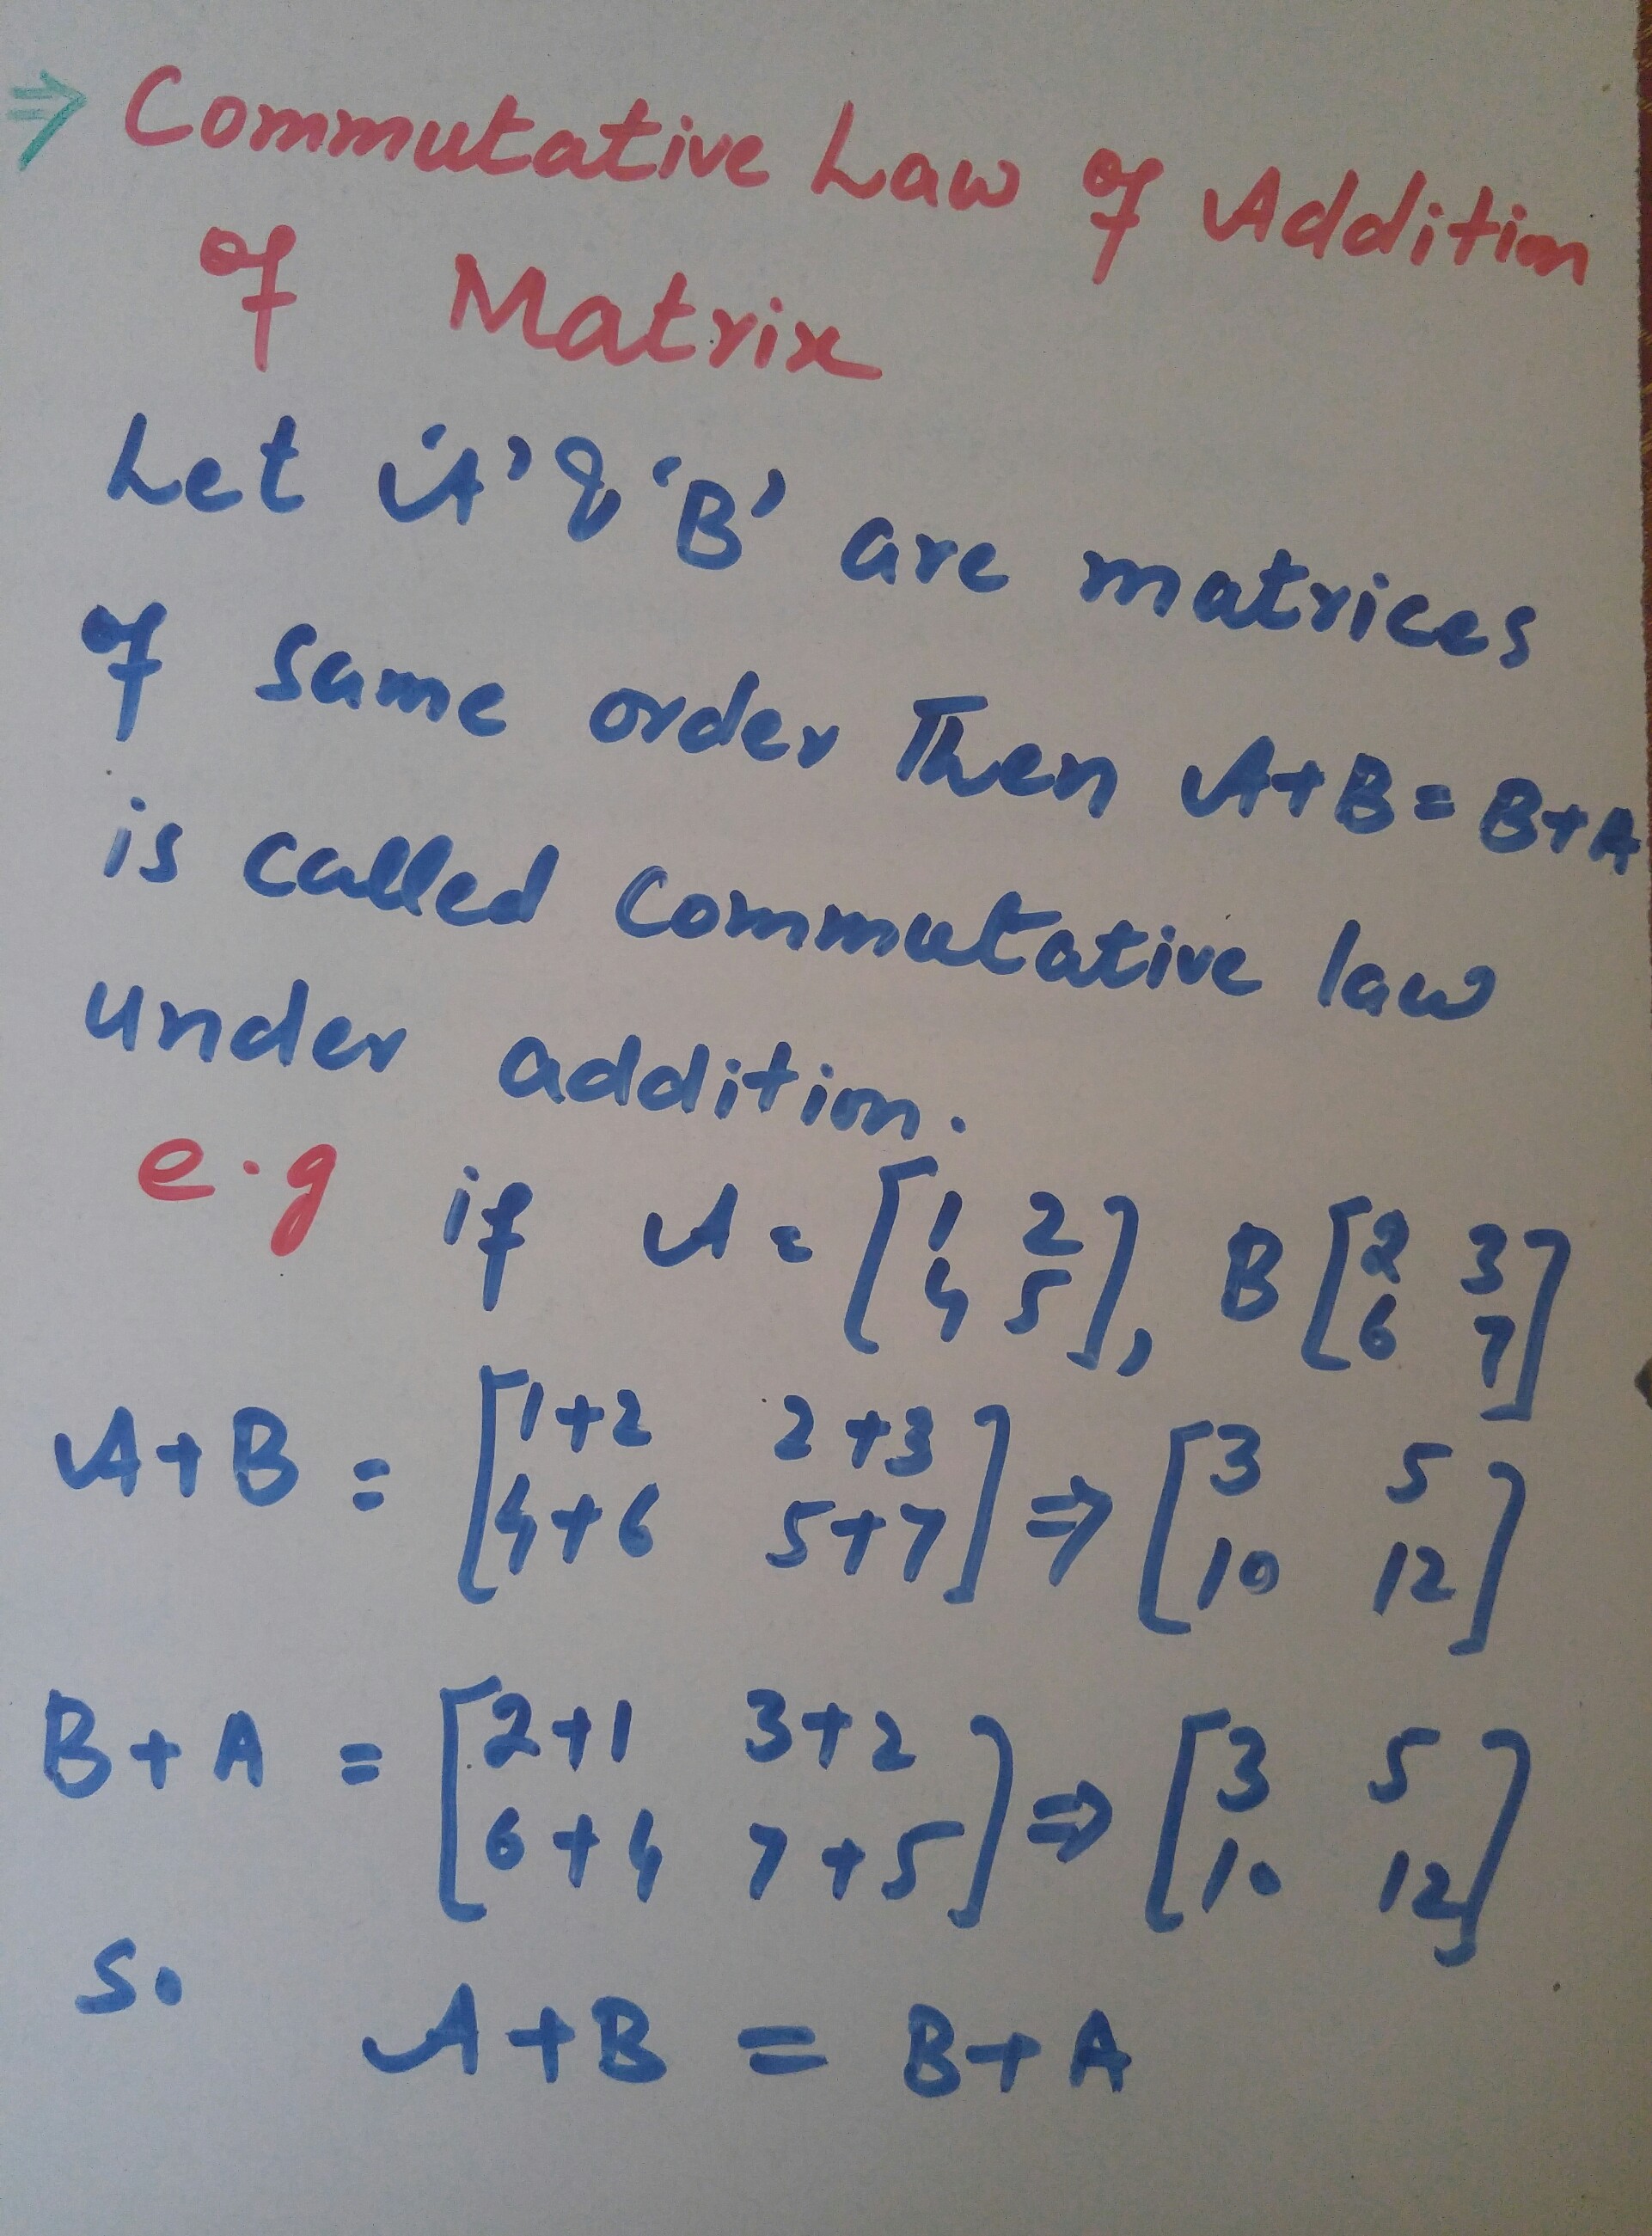 ⇒ Commutative Law of Addition
of Matrix
Let 'A' & 'B' are matrices
of same order Then A+B = B+A
is called Commutative law
under addition.
e.g if A = [1 2
4 5], B [2 3
6 7]
A+B = [1+2 2+3
4+6 5+7] ⇒ [3 5
10 12]
B+A = [2+1 3+2
6+4 7+5] ⇒ [3 5
10 12]
So
A+B = B+A